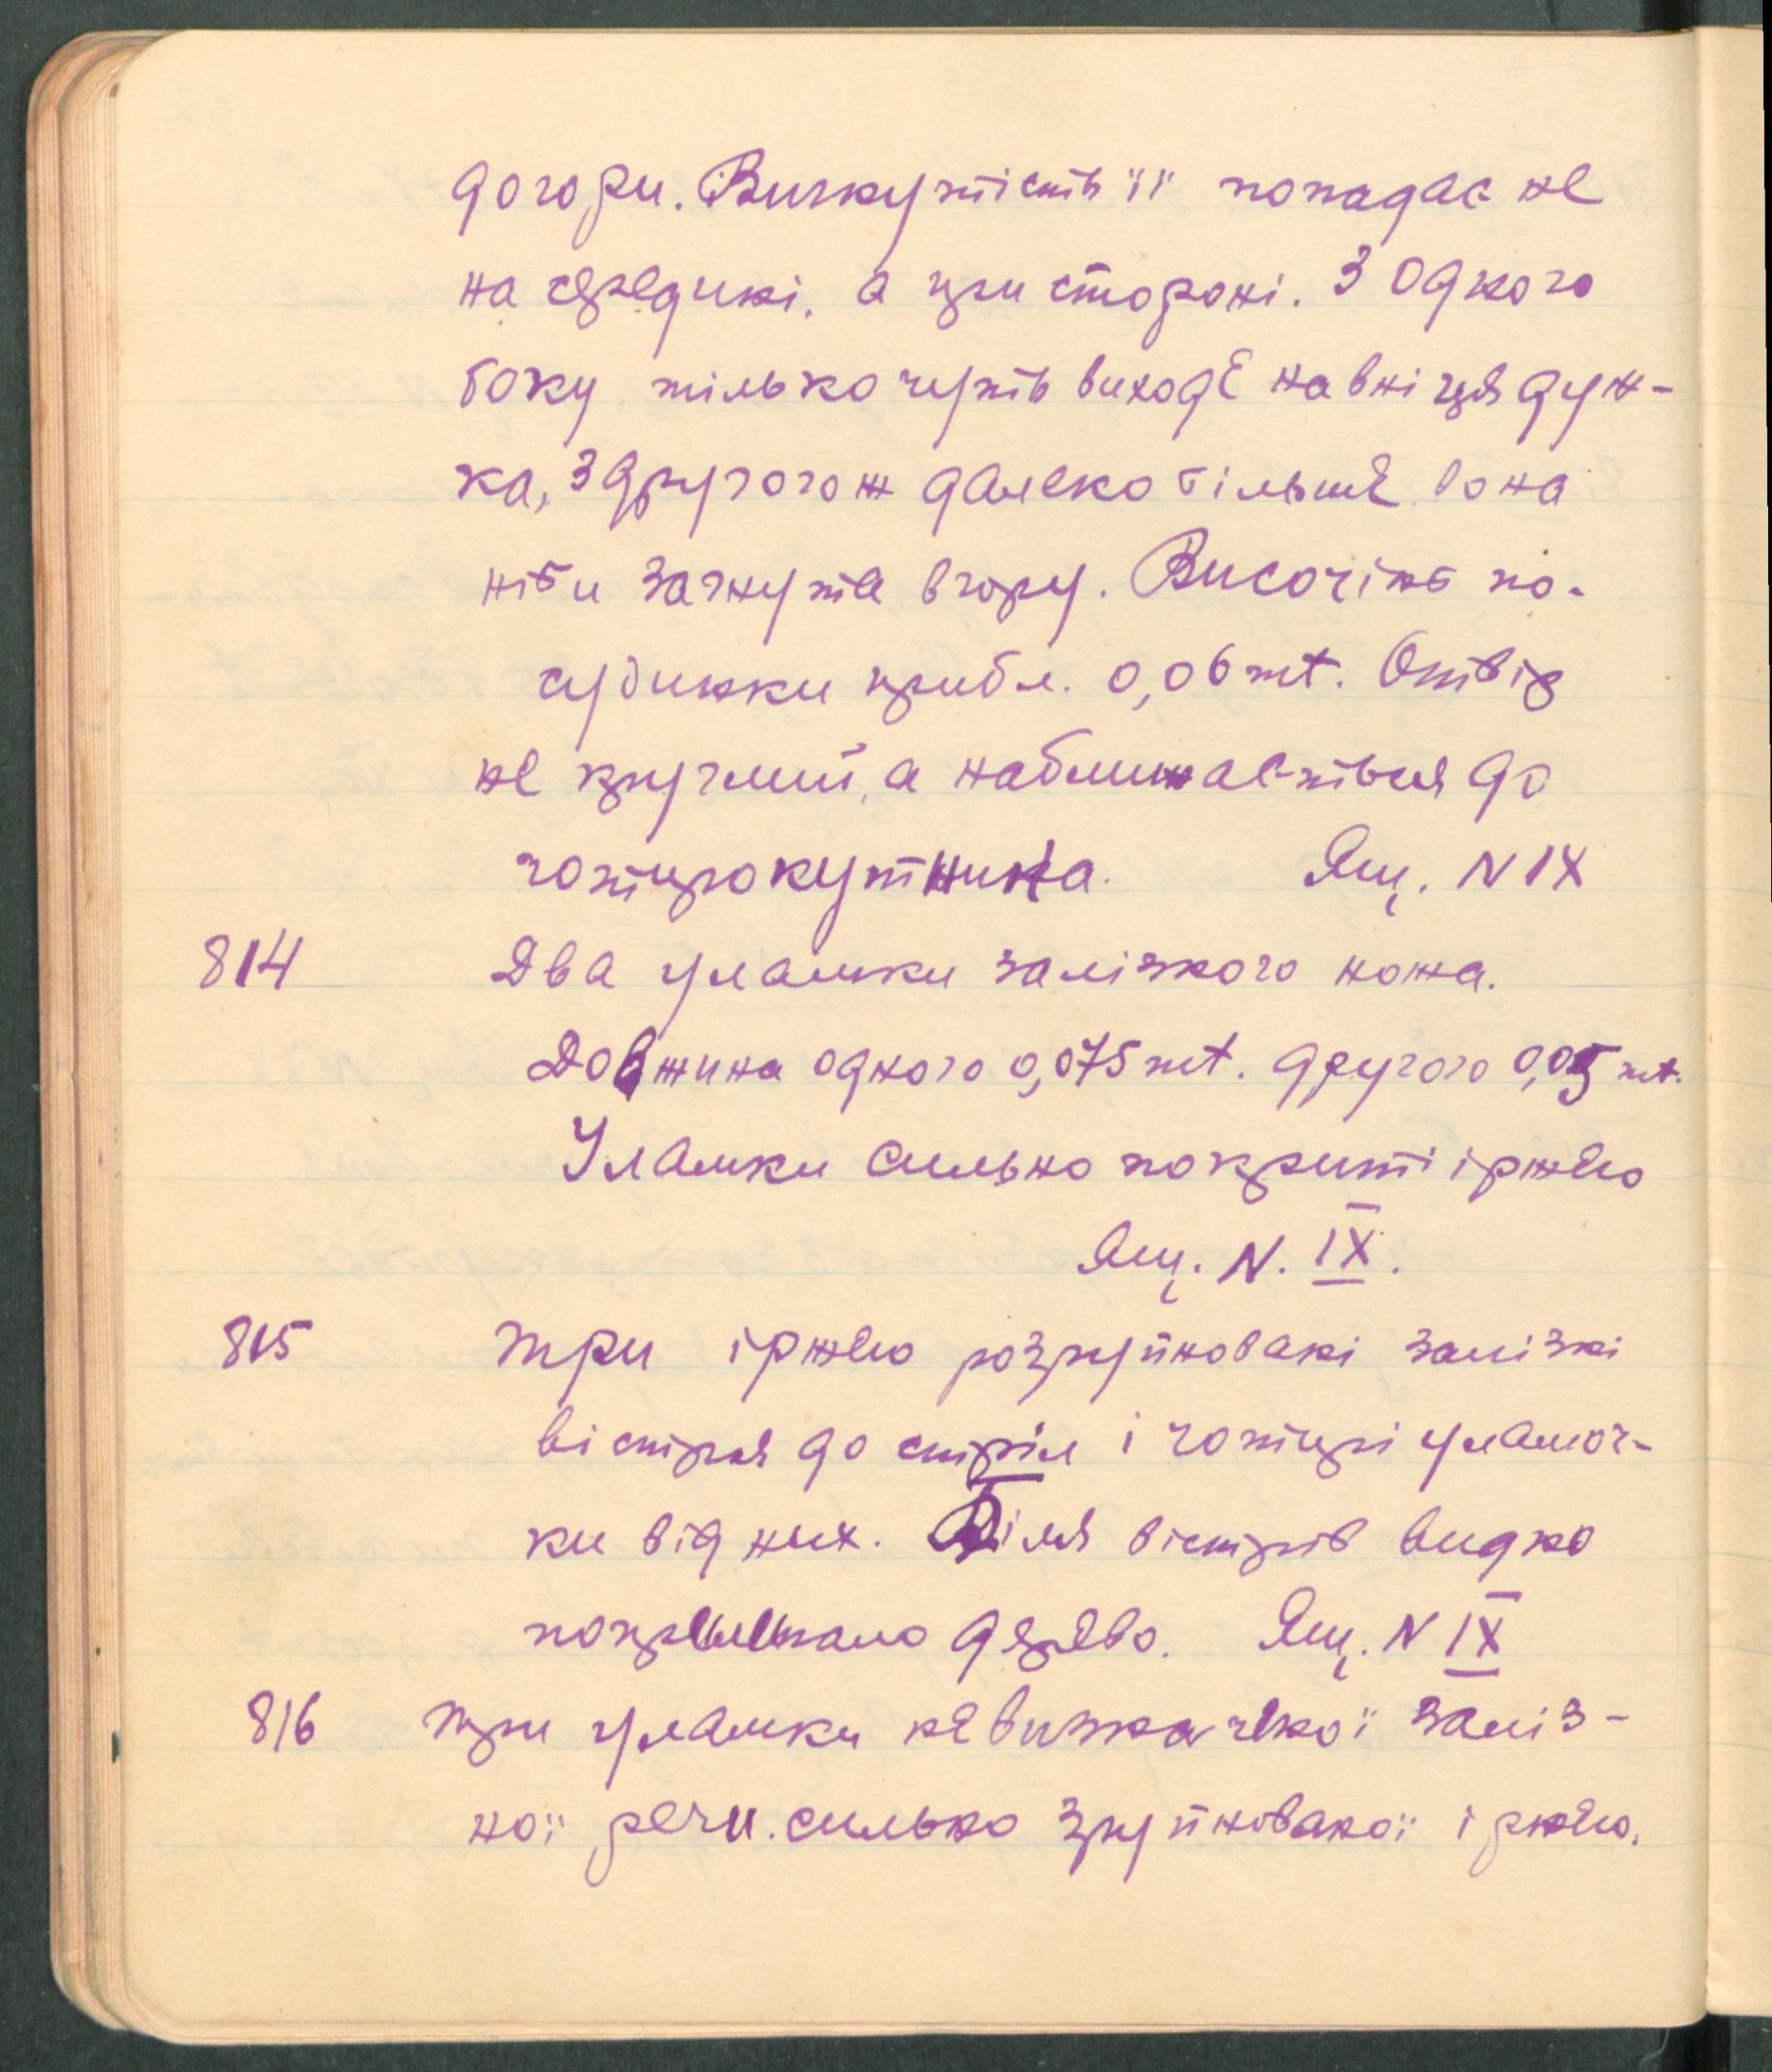 догори. Вигнутість її попадає не
на середині, а при стороні. З одного
боку тілько чуть виходе навні ця дуж-
ка, з другого ж далеко більше вона
ніби загнута вгору. Височінь по-
судинки прибл. 0,06 mt. Отвір
не круглий, а наближається до
чотирокутника. Ящ. N IX
814 Два уламки залізного ножа.
Довжина одного 0,075 mt. другого 0,05 mt.
Уламки сильно покриті іржею
Ящ. N. IX.
815 Три іржею розруйновані залізні
вістря до стріл і чотирі уламоч-
ки від них. Біля вістрів видко
попрылыпало дерево. Ящ. N IX
816 Три уламки невизначеної заліз-
ної речи. сильно зруйнованої іржею.